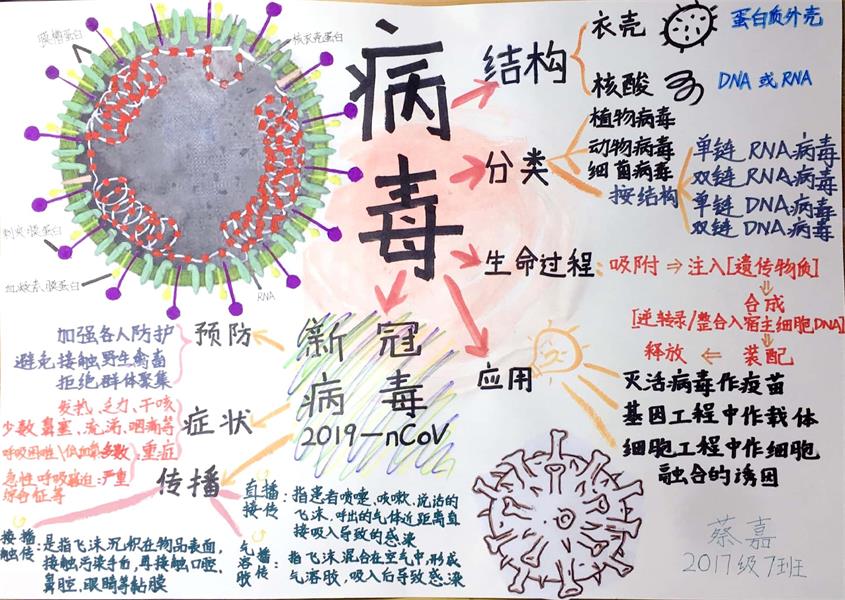 病毒
结构
衣壳
蛋白质外壳
核酸
DNA 或 RNA
分类
植物病毒
动物病毒
细菌病毒
按结构
单链 RNA病毒
双链 RNA病毒
单链 DNA病毒
双链 DNA病毒
生命过程：吸附⇒注入[遗传物质]
合成
[逆转录/整合入宿主细胞DNA]
释放 ⇐ 装配
应用
灭活病毒作疫苗
基因工程中作载体
细胞工程中作细胞
融合的诱因
膜糖蛋白
核衣壳蛋白
刺突膜蛋白
血凝素膜蛋白
RNA
新冠
病毒
2019-nCoV
预防
加强各人防护
避免接触野生禽兽
拒绝群体聚集
症状
发热、乏力、干咳
少数鼻塞、流涕、咽痛等
呼吸困难\低血氧多数:重症
急性呼吸窘迫:严重
综合征等
传播
直接传播：指患者喷嚏、咳嗽、说话的
飞沫,呼出的气体近距离直
接吸入导致的感染
气溶胶传播：指飞沫混合在空气中,形成
气溶胶,吸入后导致感染
接触传播：是指飞沫沉积在物品表面,
接触污染手后,再接触口腔、
鼻腔,眼睛等粘膜
蔡嘉
2017级7班